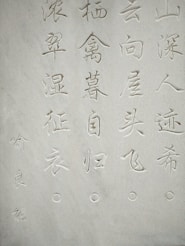 山深人迹希。
云向屋头飞。
栖禽暮自归。
浓翠湿征衣。